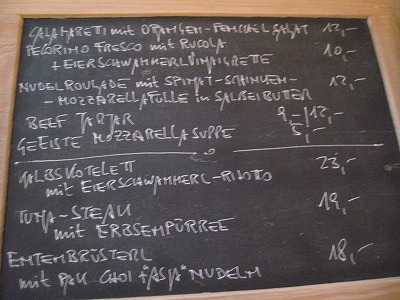 CALAMARETI mit ORANGEN-FENCHEL SALAT 12,-
PECORINO FRESCO mit RUCOLA 10,-
+ EIERSCHWAMMERLVINAIGRETTE
NUDELROULADE mit SPINAT-SCHINKEN- 12,-
- MOZZARELLAFÜLLE in SALBEIBUTTER
BEEF TARTAR 9,-/12,-
GEEISTE MOZZARELLASUPPE 5,-
KALBSKOTELETT 23,-
mit EIERSCHWAMMERL-RISOTTO
TUNA-STEAK 19,-
mit ERBSENPÜRREE
ENTENBRÜSTERL 18,-
mit PAK CHOI + "ASIA" NUDELN